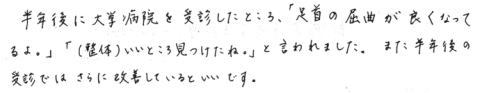 半年後に大学病院を受診したところ、「足首の屈曲が良くなって
るよ。」「(整体)いいところ見つけたね。」と言われました。また半年後の
受診ではさらに改善しているといいです。